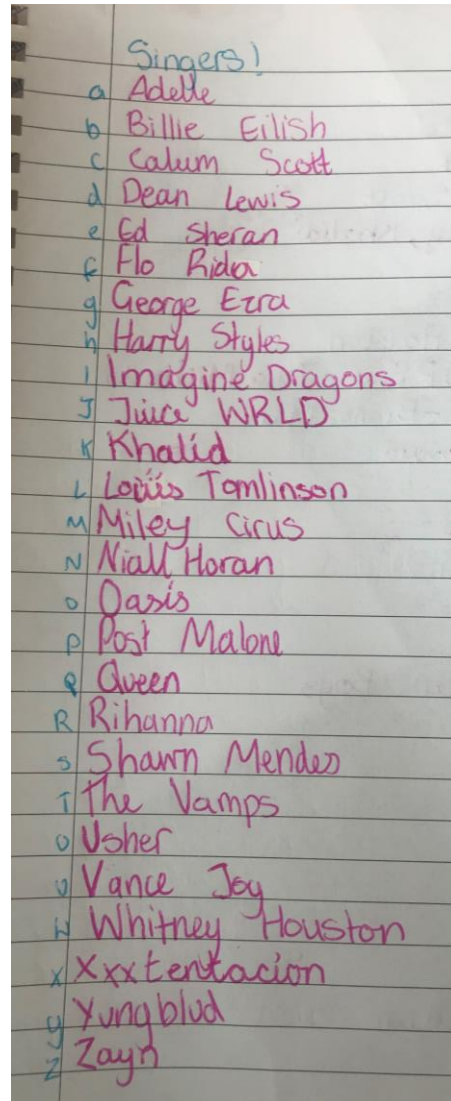 Singers!
a Adelle
b Billie Eilish
c Calum Scott
d Dean Lewis
e Ed Sheran
f Flo Rida
g George Ezra
h Harry Styles
I Imagine Dragons
J Juice WRLD
K Khalid
L Louis Tomlinson
M Miley Cirus
N Niall Horan
O Oasis
P Post Malone
Q Queen
R Rihanna
S Shawn Mendes
T The Vamps
U Usher
V Vance Joy
W Whitney Houston
X Xxxtentacion
y Yungblud
Z Zayn